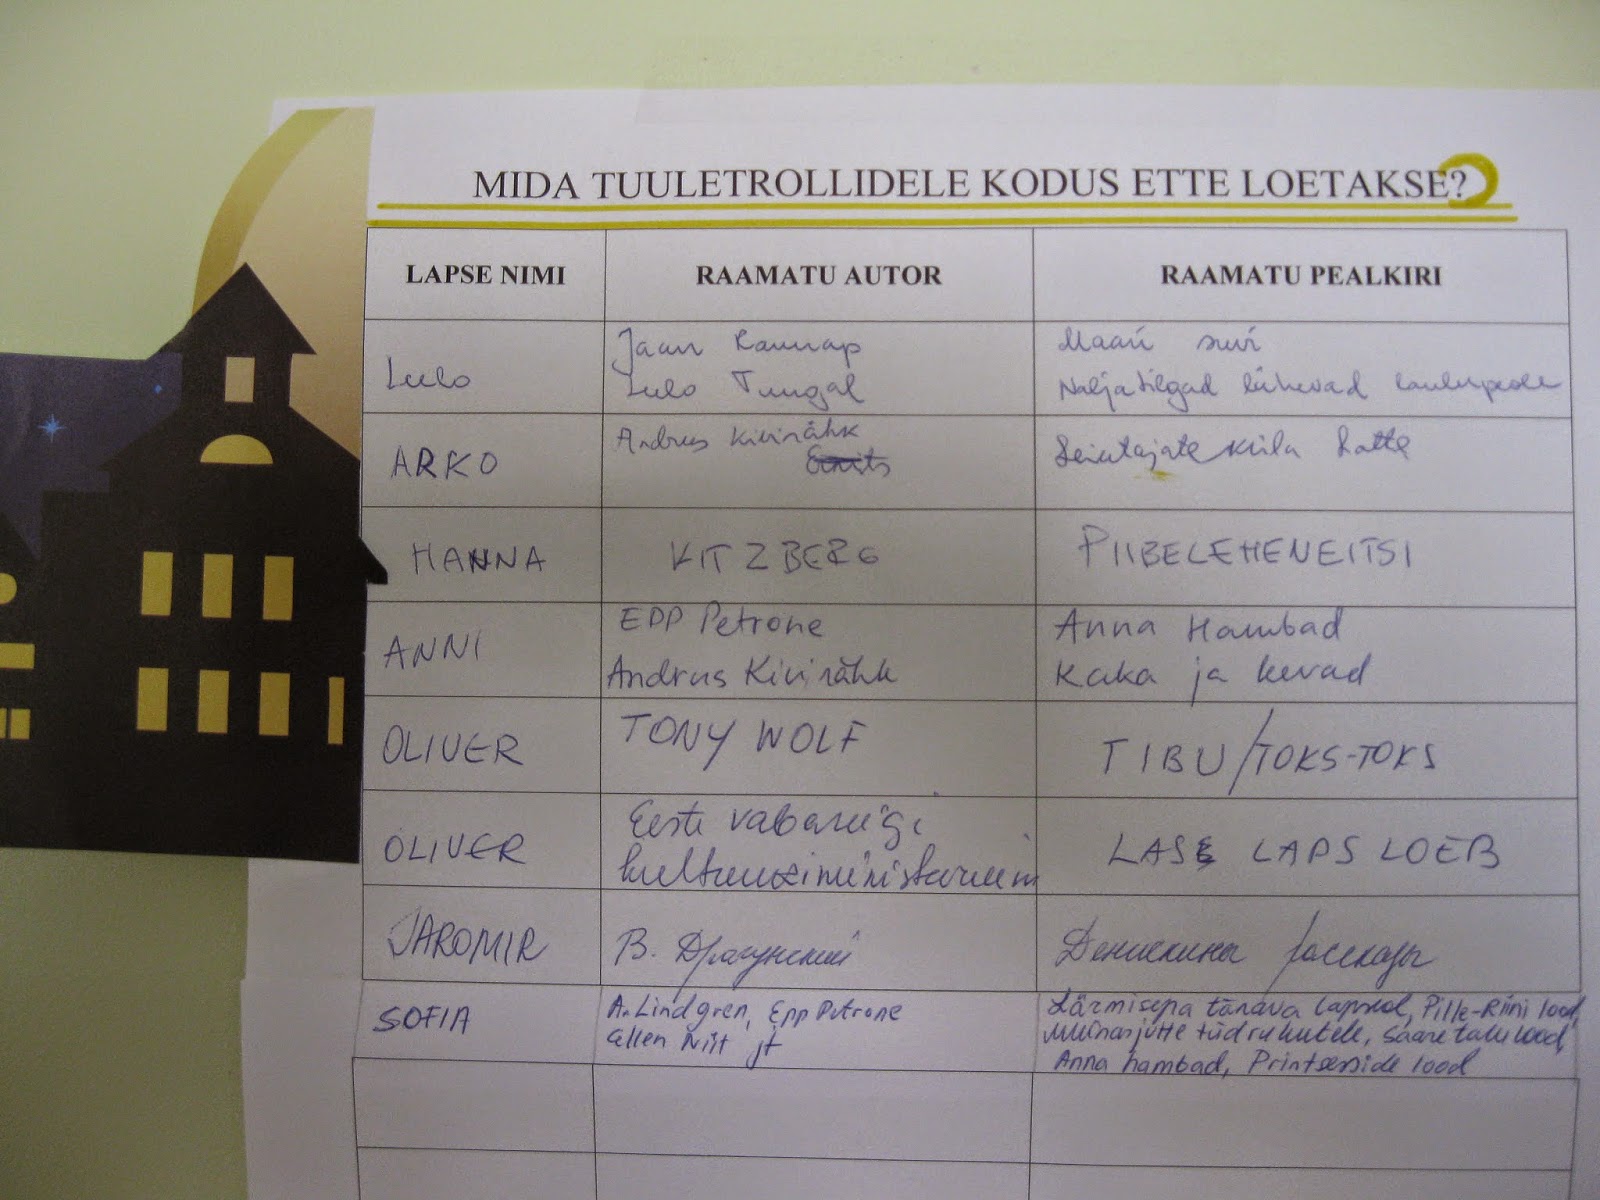 MIDA TUULETROLLIDELE KODUS ETTE LOETAKSE?
LAPSE NIMI RAAMATU AUTOR RAAMATU PEALKIRI
Lulo
Jaan Rannap
Lulo Tungal
Maari suvi
Naljatilgad lähevad laulupeole
ARKO
Andrus Kivirähk
Leiutajateküla Lotte
HANNA KITZBERG PIIBELEHENEITSI
ANNI
EPP Petrone
Andrus Kivirähk
Anna Hambad
Kaka ja kevad
OLIVER TONY WOLF TIBU/TOKS-TOKS
OLIVER
Eesti vabariigi
kultuuriministeerium
LASE LAPS LOEB
JAROMIR В. Драгунский Денискины рассказы
SOFIA
A. Lindgren, Epp Petrone
Ellen Niit jt
Lärmisepa tänava lapsed, Pille-Riini lood,
Muinasjutte tüdrukutele, Saaretalu lood,
Anna hambad, Printsesside lood